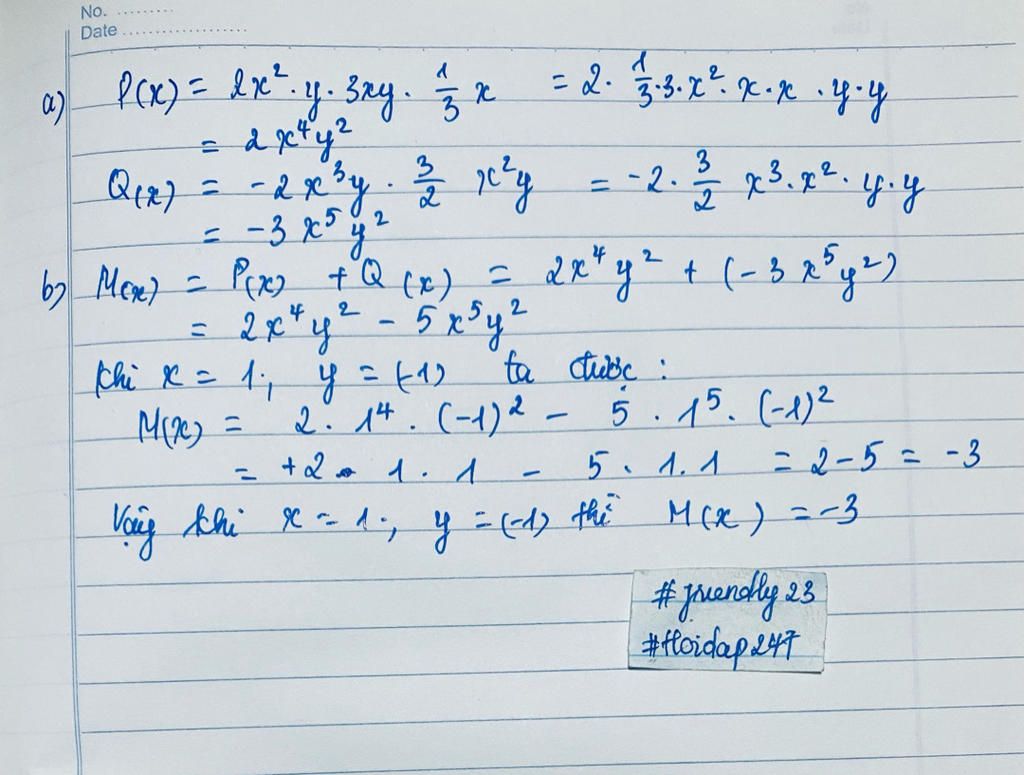 No. ..........
Date ....................
a) P(x) = 2x² . y . 3xy . 1/3 x = 2 . 1/3 . 3 . x² . x . x . y . y
= 2x⁴y²
Q(x) = -2x³y . 3/2 x²y = -2 . 3/2 x³ . x² . y . y
= -3x⁵y²
b) M(x) = P(x) + Q(x) = 2x⁴y² + (-3x⁵y²)
= 2x⁴y² - 5x⁵y²
Khi x = 1 ; y = (-1) ta được :
M(x) = 2 . 1⁴ . (-1)² - 5 . 1⁵ . (-1)²
= +2 . 1 . 1 - 5 . 1 . 1 = 2 - 5 = -3
Vậy khi x = 1 ; y = (-1) thì M(x) = -3
#friendly23
#Hoidap247